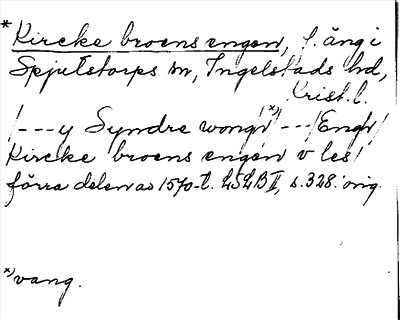 * Kircke broens engen, f. äng i
Spjutstorps sn, Ingelstads hd,
Krist. l.
/---y Syndre wongn x)/---/Engh/
Kircke broens engen v les/
förra delen av 1570-t. LSLB II, s. 328. orig.
x) vang.